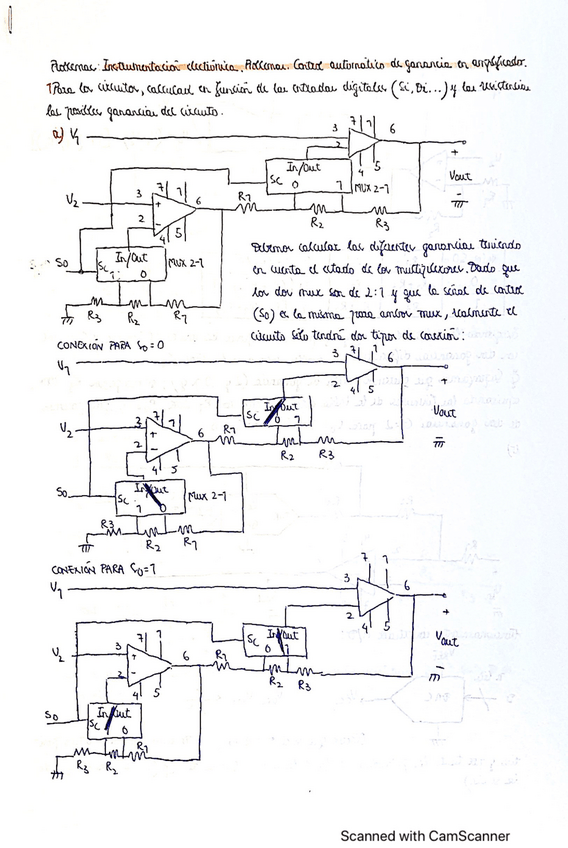 Problemas: Instrumentación electrónica. Problemas. Control automático de ganancia en amplificador.
1 Para los circuitos, calculad en función de las entradas digitales (Si, Di...) y las resistencias
las posibles ganancias del circuito.
a) V1
3
2
7
1
6
4
5
+
Vout
-
In/Out
SC
0
1
MUX 2-1
R1
R2
R3
V2
3
2
+
-
7
1
6
4
5
S0
In/Out
SC
1
0
MUX 2-1
R3
R2
R1
Debemos calcular las diferentes ganancias teniendo
en cuenta el estado de los multiplexores. Dado que
los dos mux son de 2:1 y que la señal de control
(S0) es la misma para ambos mux, realmente el
circuito sólo tendrá dos tipos de conexión:
CONEXIÓN PARA S0=0
V1
3
2
7
1
6
4
5
+
Vout
-
SC
In/Out
0
1
R1
R2
R3
V2
3
2
+
-
7
1
6
4
5
S0
SC
In/Out
1
0
Mux 2-1
R3
R2
R1
CONEXIÓN PARA S0=1
V1
3
2
7
1
6
4
5
+
Vout
-
SC
In/Out
0
1
R1
R2
R3
V2
3
2
+
-
7
1
6
4
5
S0
SC
In/Out
0
R3
R2
R1
Scanned with CamScanner